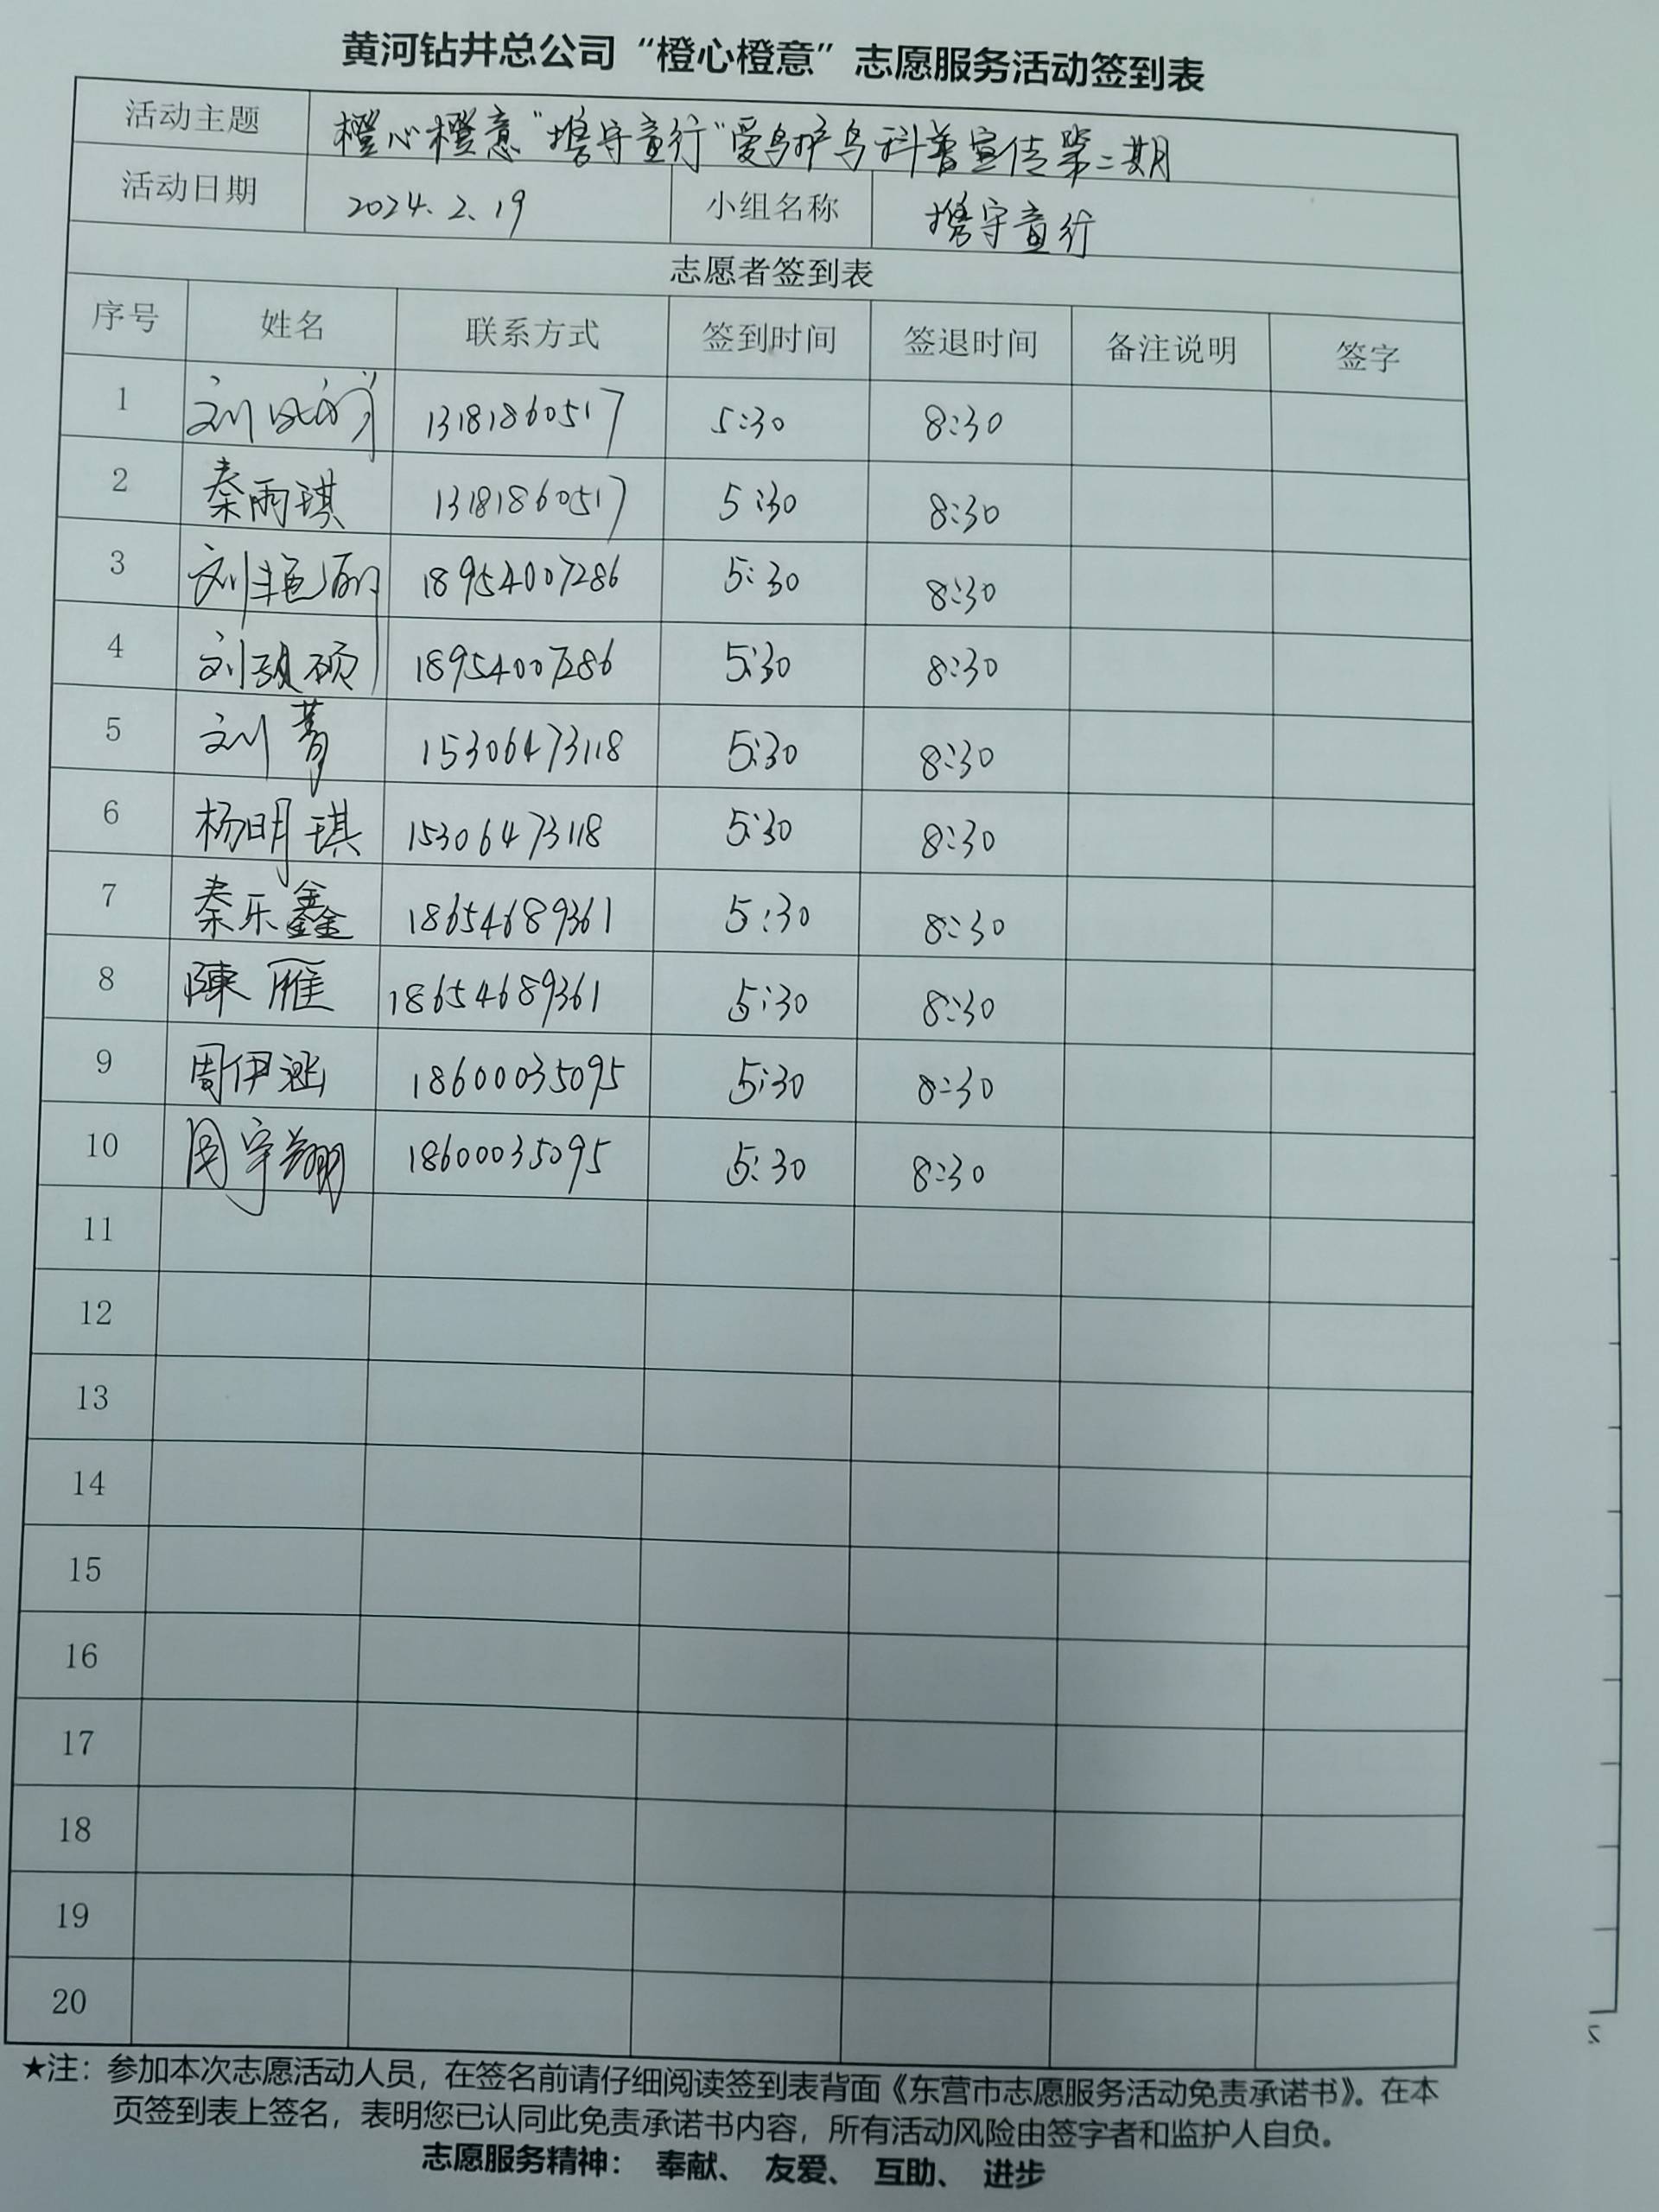 黄河钻井总公司“橙心橙意”志愿服务活动签到表
活动主题 橙心橙意“携守童行”爱鸟护鸟科普宣传第二期
活动日期 2024.2.19 小组名称 携守童行
志愿者签到表
序号 姓名 联系方式 签到时间 签退时间 备注说明 签字
1 刘 13181860517 5:30 8:30
2 秦雨琪 13181860517 5:30 8:30
3 刘艳丽 18954007286 5:30 8:30
4 刘 硕 18954007286 5:30 8:30
5 刘菁 15306473118 5:30 8:30
6 杨明琪 15306473118 5:30 8:30
7 秦乐鑫 18654689361 5:30 8:30
8 陳雁 18654689361 5:30 8:30
9 周伊涵 18600035095 5:30 8:30
10 周宇翔 18600035095 5:30 8:30
11
12
13
14
15
16
17
18
19
20
★注：参加本次志愿活动人员，在签名前请仔细阅读签到表背面《东营市志愿服务活动免责承诺书》。在本
页签到表上签名，表明您已认同此免责承诺书内容，所有活动风险由签字者和监护人自负。
志愿服务精神： 奉献、 友爱、 互助、 进步